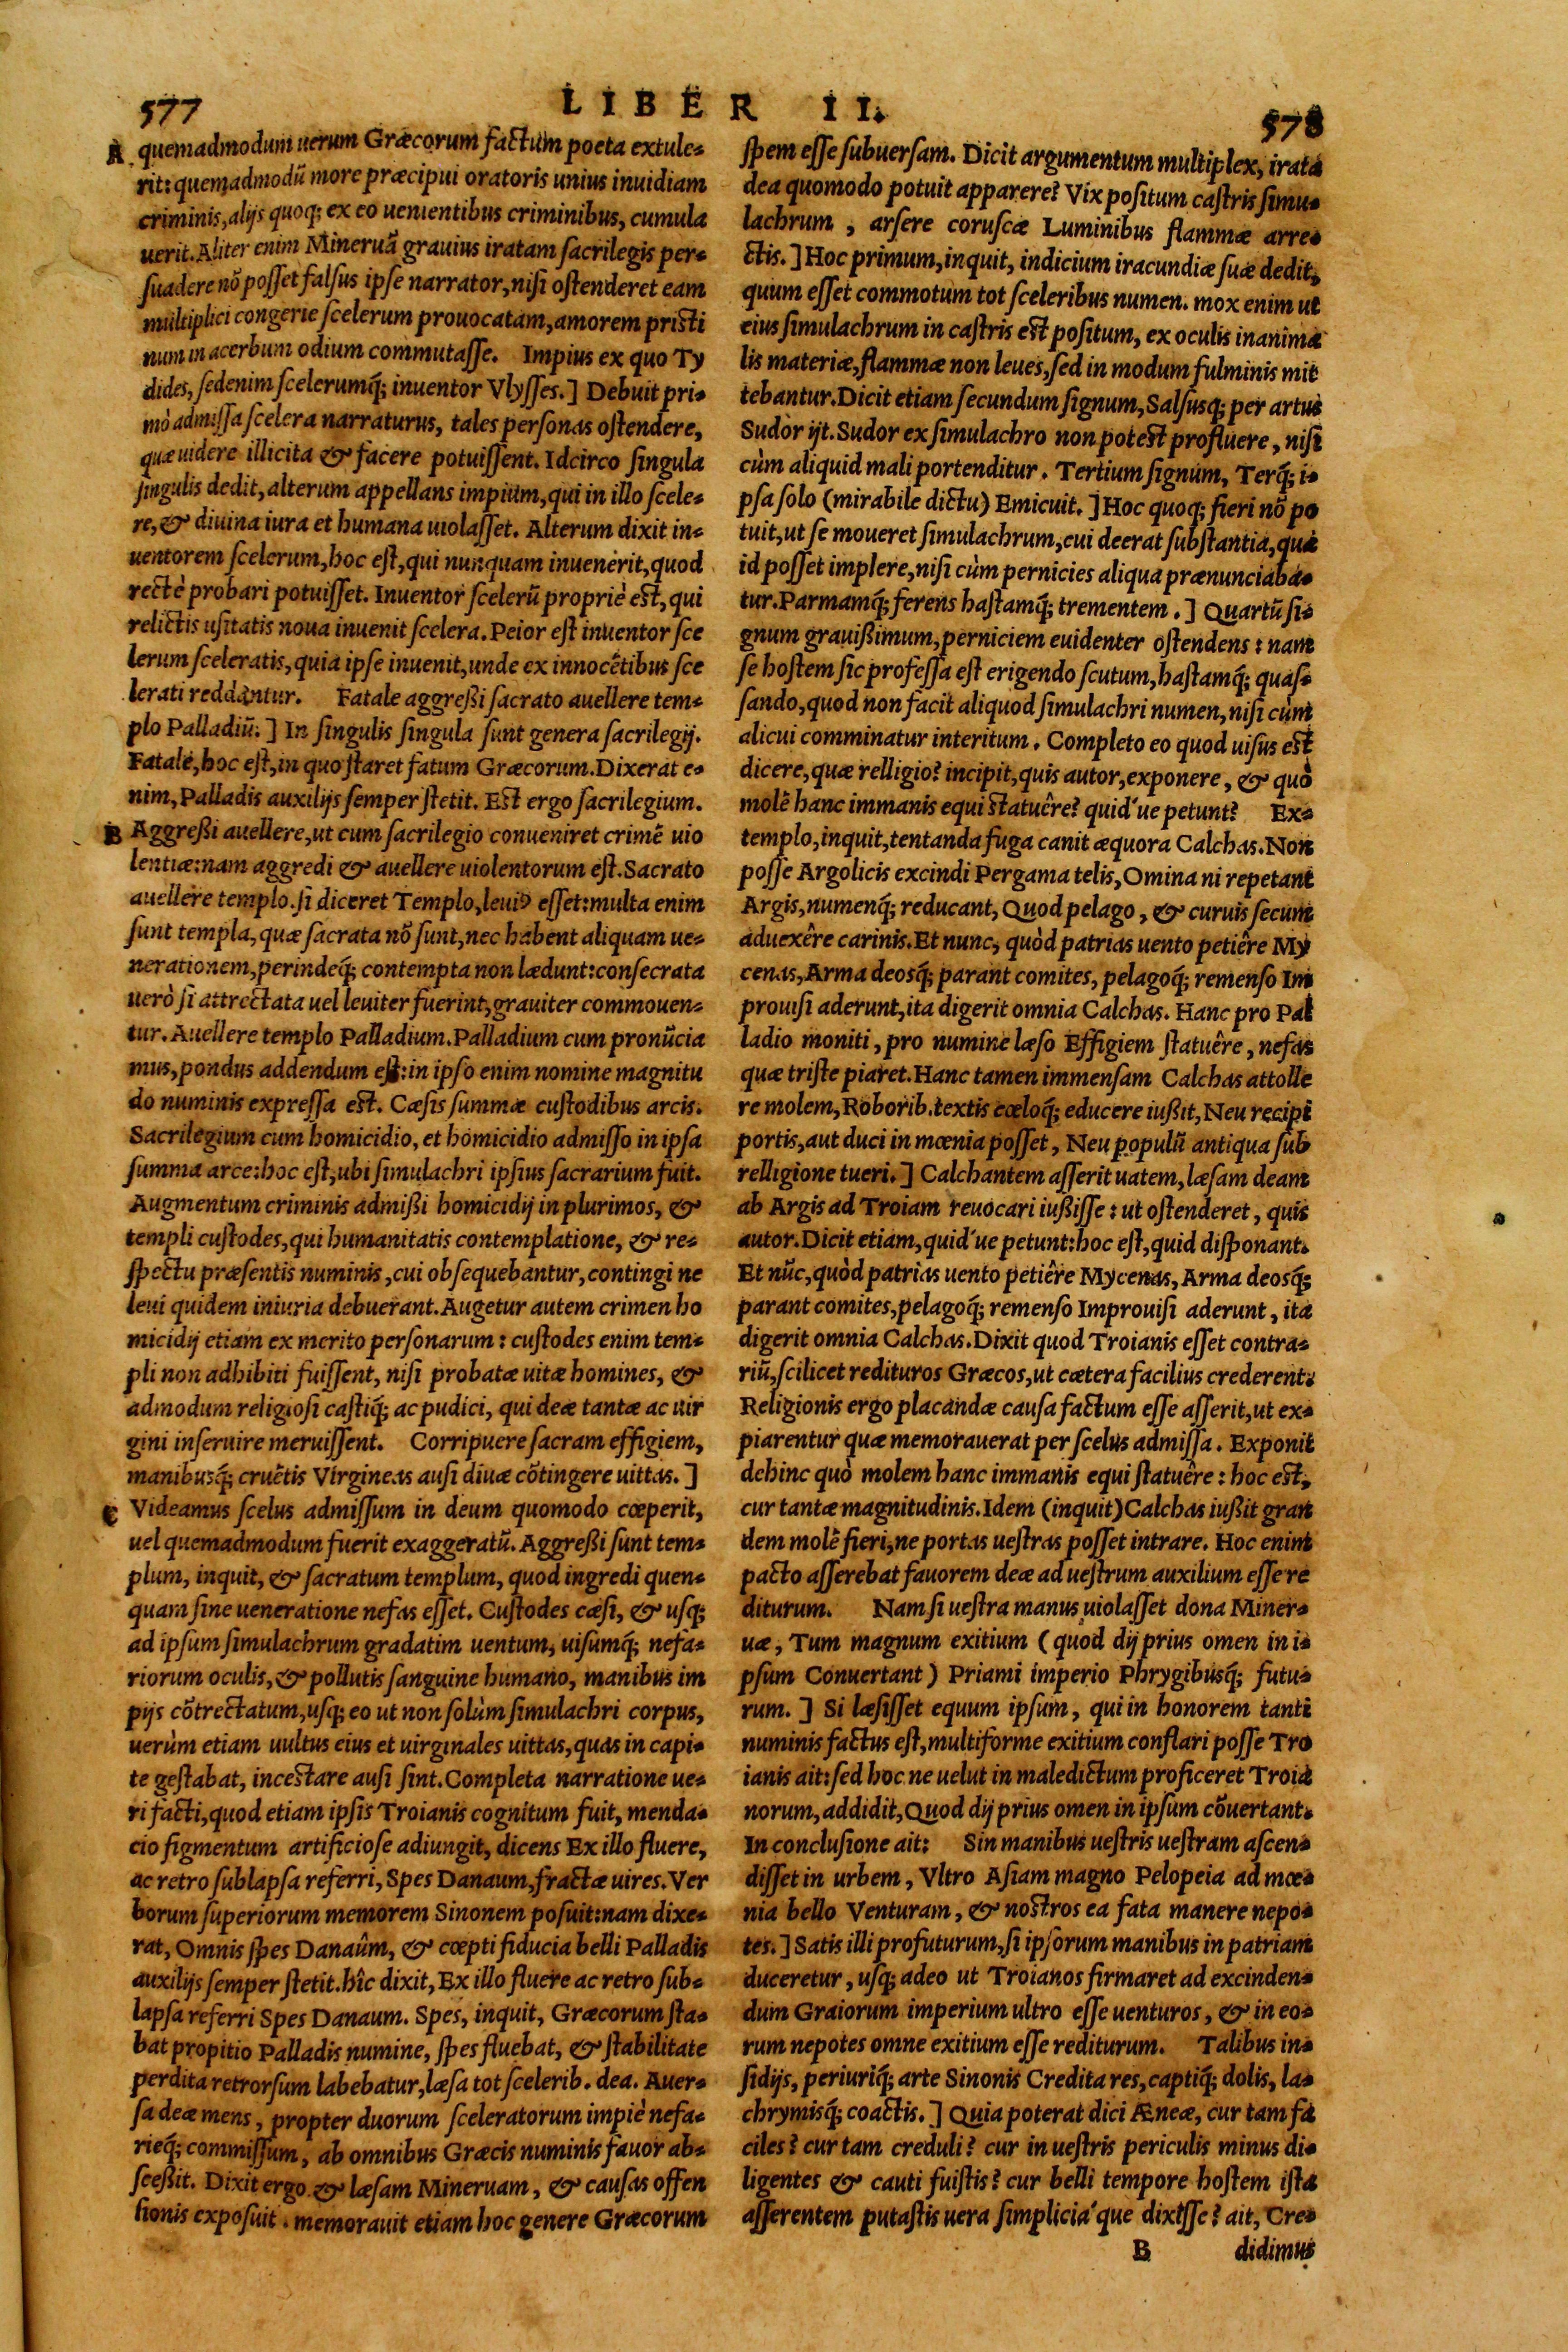 577
LIBER II.
578
A quemadmodum uerum Græcorum factum poeta extule-
rit: quemadmodũ more præcipui oratoris unius inuidiam
criminis, alijs quoq; ex eo uenientibus criminibus, cumula
uerit. Aliter enim Mineruã grauius iratam sacrilegis per-
suadere nõ posset falsus ipse narrator, nisi ostenderet eam
multiplici congerie scelerum prouocatam, amorem pristi
num in acerbum odium commutasse. Impius ex quo Ty
dides, sedenim scelerumq́; inuentor Vlysses.] Debuit pri-
mò admissa scelera narraturus, tales personas ostendere,
quæ uidere illicita & facere potuissent. Idcirco singula
singulis dedit, alterum appellans impium, qui in illo scele-
re, & diuina iura et humana uiolasset. Alterum dixit in-
uentorem scelerum, hoc est, qui nunquam inuenerit, quod
rectè probari potuisset. Inuentor scelerũ propriè est, qui
relictis usitatis noua inuenit scelera. Peior est inuentor sce
lerum sceleratis, quia ipse inuenit, unde ex innocẽtibus sce
lerati reddantur. Fatale aggreßi sacrato auellere tem-
plo Palladiũ.] In singulis singula sunt genera sacrilegij.
Fatale, hoc est, in quo staret fatum Græcorum. Dixerat e-
nim, Palladis auxilijs semper stetit. Est ergo sacrilegium.
B Aggreßi auellere, ut cum sacrilegio conueniret crimẽ uio
lentiæ: nam aggredi & auellere uiolentorum est. Sacrato
auellere templo. si diceret Templo, leuiꝰ esset: multa enim
sunt templa, quæ sacrata nõ sunt, nec habent aliquam ue-
nerationem, perindeq́; contempta non lædunt: consecrata
uerò si attrectata uel leuiter fuerint, grauiter commouen-
tur. Auellere templo Palladium. Palladium cum pronũcia
mus, pondus addendum est: in ipso enim nomine magnitu
do numinis expressa est. Cæsis summæ custodibus arcis.
Sacrilegium cum homicidio, et homicidio admisso in ipsa
summa arce: hoc est, ubi simulachri ipsius sacrarium fuit.
Augmentum criminis admißi homicidij in plurimos, &
templi custodes, qui humanitatis contemplatione, & re-
spectu præsentis numinis, cui obsequebantur, contingi ne
leui quidem iniuria debuerant. Augetur autem crimen ho
micidij etiam ex merito personarum: custodes enim tem-
pli non adhibiti fuissent, nisi probatæ uitæ homines, &
admodum religiosi castiq́; ac pudici, qui deæ tantæ ac uir
gini inseruire meruissent. Corripuere sacram effigiem,
manibusq́; cruẽtis Virgineas ausi diuæ cõtingere uittas.]
C Videamus scelus admissum in deum quomodo cœperit,
uel quemadmodum fuerit exaggeratũ. Aggreßi sunt tem-
plum, inquit, & sacratum templum, quod ingredi quen-
quam sine ueneratione nefas esset. Custodes cæsi, & usq;
ad ipsum simulachrum gradatim uentum, uisumq́; nefa-
riorum oculis, & pollutis sanguine humano, manibus im
pijs cõtrectatum, usq; eo ut non solùm simulachri corpus,
uerùm etiam uultus eius et uirginales uittas, quas in capi-
te gestabat, incestare ausi sint. Completa narratione ue-
ri facti, quod etiam ipsis Troianis cognitum fuit, menda-
cio figmentum artificiose adiungit, dicens Ex illo fluere,
ac retro sublapsa referri, Spes Danaum, fractæ uires. Ver
borum superiorum memorem Sinonem posuit: nam dixe-
rat, Omnis spes Danaûm, & cœpti fiducia belli Palladis
auxilijs semper stetit. hîc dixit, Ex illo fluere ac retro sub-
lapsa referri Spes Danaum. Spes, inquit, Græcorum sta-
bat propitio Palladis numine, spes fluebat, & stabilitate
perdita retrorsum labebatur, læsa tot scelerib. dea. Auer-
sa deæ mens, propter duorum sceleratorum impiè nefa-
rieq́; commissum, ab omnibus Græcis numinis fauor ab-
sceßit. Dixit ergo & læsam Mineruam, & causas offen
sionis exposuit. memorauit etiam hoc genere Græcorum
spem esse subuersam. Dicit argumentum multiplex, irata
dea quomodo potuit apparere? Vix positum castris simu-
lachrum, arsere coruscæ Luminibus flammæ arre-
ctis.] Hoc primum, inquit, indicium iracundiæ suæ dedit,
quum esset commotum tot sceleribus numen. mox enim ut
eius simulachrum in castris est positum, ex oculis inanima
lis materiæ, flammæ non leues, sed in modum fulminis mit
tebantur. Dicit etiam secundum signum, Salsusq; per artus
Sudor ijt. Sudor ex simulachro non potest profluere, nisi
cùm aliquid mali portenditur. Tertium signum, Terq́; i-
psa solo (mirabile dictu) Emicuit.] Hoc quoq; fieri nõ po
tuit, ut se moueret simulachrum, cui deerat substantia, qua
id posset implere, nisi cùm pernicies aliqua prænunciaba-
tur. Parmamq́; ferens hastamq́; trementem.] Quartũ si-
gnum grauißimum, perniciem euidenter ostendens: nam
se hostem sic professa est erigendo scutum, hastamq́; quas-
sando, quod non facit aliquod simulachri numen, nisi cùm
alicui comminatur interitum. Completo eo quod uisus est
dicere, quæ relligio? incipit, quis autor, exponere, & quò
molẽ hanc immanis equi statuêre? quid'ue petunt? Ex-
templo, inquit, tentanda fuga canit æquora Calchas. Non
posse Argolicis excindi Pergama telis, Omina ni repetant
Argis, numenq́; reducant, Quod pelago, & curuis secum
aduexêre carinis. Et nunc, quòd patrias uento petiêre My
cenas, Arma deosq́; parant comites, pelagoq́; remenso Im
prouisi aderunt, ita digerit omnia Calchas. Hanc pro Pal
ladio moniti, pro numine læso Effigiem statuêre, nefas
quæ triste piaret. Hanc tamen immensam Calchas attolle
re molem, Roborib. textis cœloq́; educere iußit, Neu recipi
portis, aut duci in mœnia posset, Neu populũ antiqua sub
relligione tueri.] Calchantem asserit uatem, læsam deam
ab Argis ad Troiam reuocari iußisse: ut ostenderet, quis
autor. Dicit etiam, quid'ue petunt: hoc est, quid disponant.
Et nũc, quòd patrias uento petiêre Mycenas, Arma deosq́;
parant comites, pelagoq́; remenso Improuisi aderunt, ita
digerit omnia Calchas. Dixit quod Troianis esset contra-
riũ, scilicet redituros Græcos, ut cætera facilius crederent.
Religionis ergo placandæ causa factum esse asserit, ut ex-
piarentur quæ memorauerat per scelus admissa. Exponit
dehinc quò molem hanc immanis equi statuêre: hoc est,
cur tantæ magnitudinis. Idem (inquit) Calchas iußit gran
dem molẽ fieri, ne portas uestras posset intrare. Hoc enim
pacto asserebat fauorem deæ ad uestrum auxilium esse re
diturum. Nam si uestra manus uiolasset dona Miner-
uæ, Tum magnum exitium (quod dij prius omen in i-
psum Conuertant) Priami imperio Phrygibusq́; futu-
rum.] Si læsisset equum ipsum, qui in honorem tanti
numinis factus est, multiforme exitium conflari posse Tro
ianis ait: sed hoc ne uelut in maledictum proficeret Troia
norum, addidit, Quod dij prius omen in ipsum cõuertant.
In conclusione ait: Sin manibus uestris uestram ascen-
disset in urbem, Vltro Asiam magno Pelopeia ad mœ-
nia bello Venturam, & nostros ea fata manere nepo-
tes.] Satis illi profuturum, si ipsorum manibus in patriam
duceretur, usq; adeo ut Troianos firmaret ad excinden-
dum Graiorum imperium ultro esse uenturos, & in eo-
rum nepotes omne exitium esse rediturum. Talibus in-
sidijs, periuriq́; arte Sinonis Credita res, captiq́; dolis, la-
chrymisq́; coactis.] Quia poterat dici Æneæ, cur tam fa
ciles? cur tam creduli? cur in uestris periculis minus di-
ligentes & cauti fuistis? cur belli tempore hostem ista
asserentem putastis uera simplicia'que dixisse? ait, Cre-
B didimus